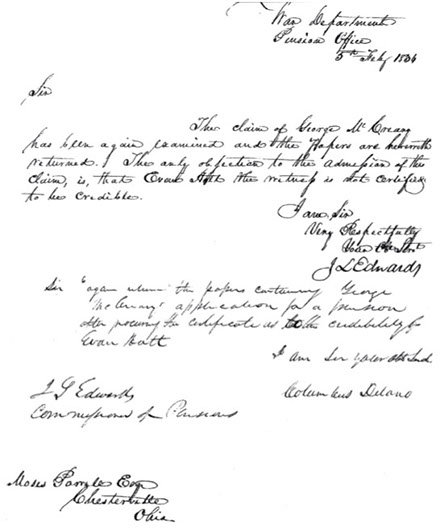 War Department
Pension Office
5th Feby 1836
Sir
The claim of George McCreary
has been again examined and the Papers are herewith
returned. The only objection to the admission of this
claim, is, that Evan Holt the witness is not certified
to be credible.
I am, Sir
Very Respectfully
Your Obt Svt
J L Edwards
Sir again return the papers containing George
McCreary's application for a pension
after procuring the certificate as to the credibility of
Evan Holt
I am Sir your obt
J L Edwards
Commissioner of Pensions
Columbus Delano
Moses Esq
Chesterville
Ohio